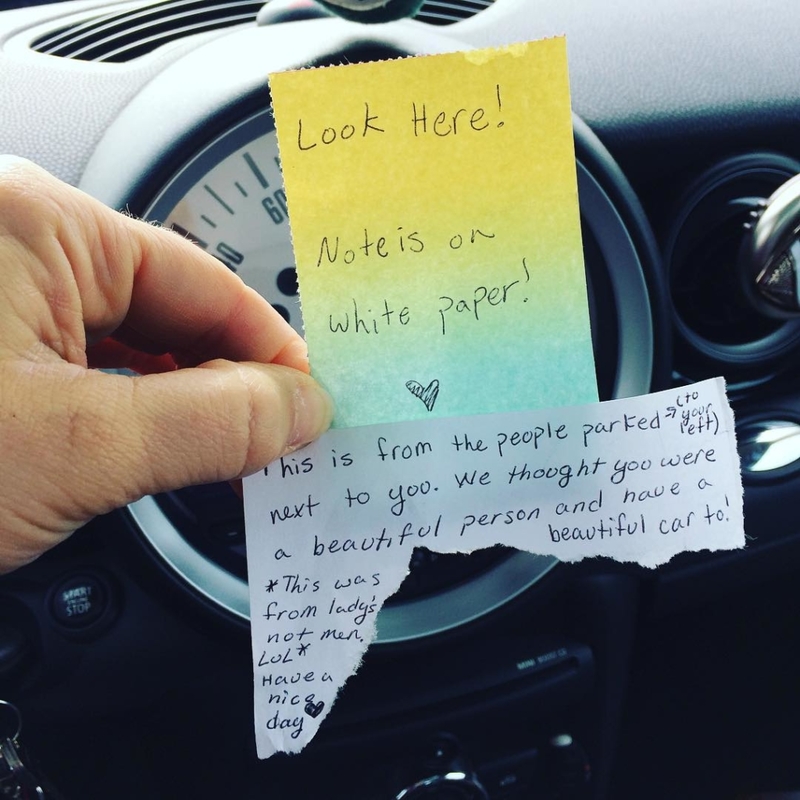 Look Here!
Note is on
white paper!
This is from the people parked → (to your left)
next to you. We thought you were
a beautiful person and have a
beautiful car to!
*This was
from lady's
not men.
LOL*
Have a
nice
day
60
40
START
STOP